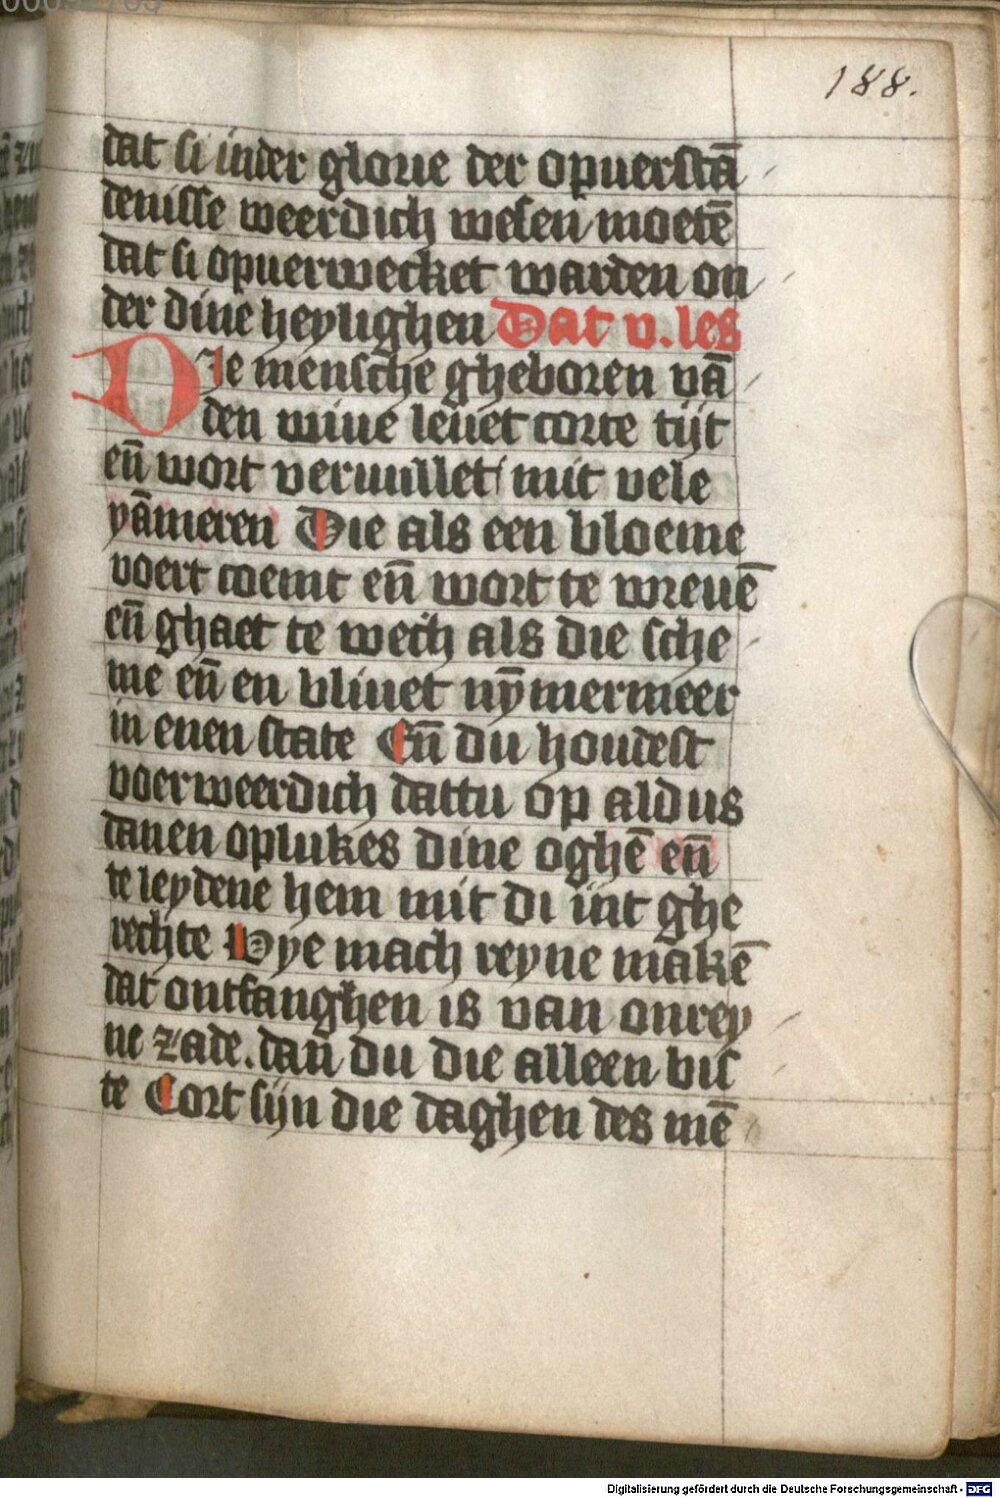 188.
dat si inder glorie der opuerstā
denisse weerdich wesen moetē
dat si opuerwecket warden on
der dine heylighen Dat v. les
Die mensche gheboren vā
den wiue leuet corte tijt
eñ wort veruullet mit vele
yāmeren Die als een bloeme
voert coemt eñ wort te wreuē
eñ ghaet te wech als die sche
me eñ en bliuet nȳmermeer
in enen state Eñ du houdest
voerweerdich dattu op aldus
danen oplukes dine oghē eñ
te leydene hem mit di int ghe
rechte Wye mach reyne makē
dat ontfanghen is van onrey
ne zade. dan du die alleen bis
te Cort sijn die daghen des mē
Digitalisierung gefördert durch die Deutsche Forschungsgemeinschaft - DFG